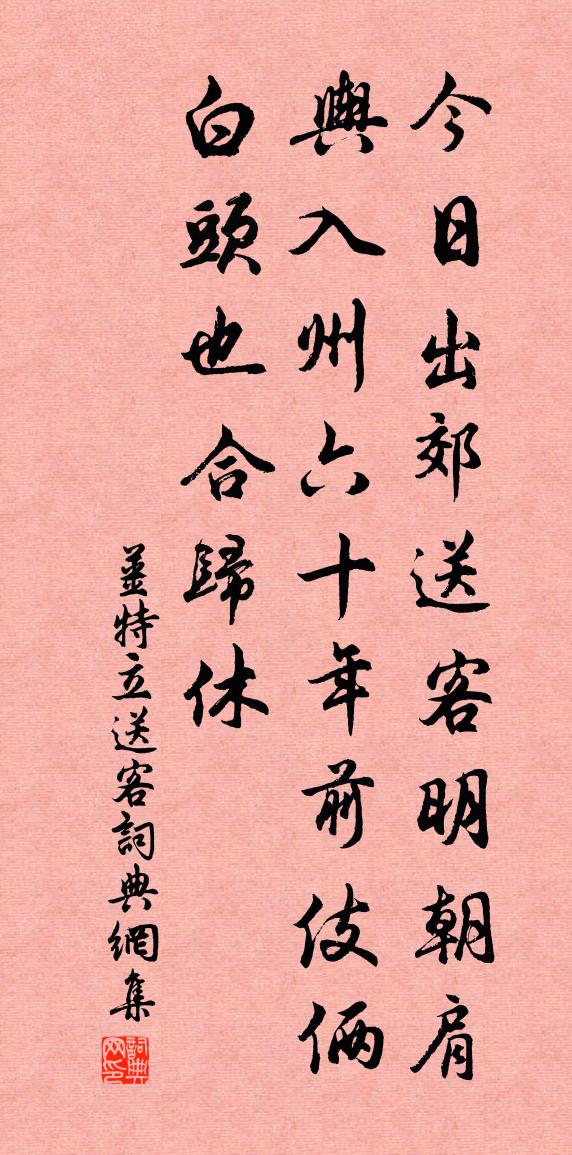 今日出郊送客明朝肩
輿入州六十年前伎倆
白頭也合歸休
薑特立送客詞典網集
詞典网印